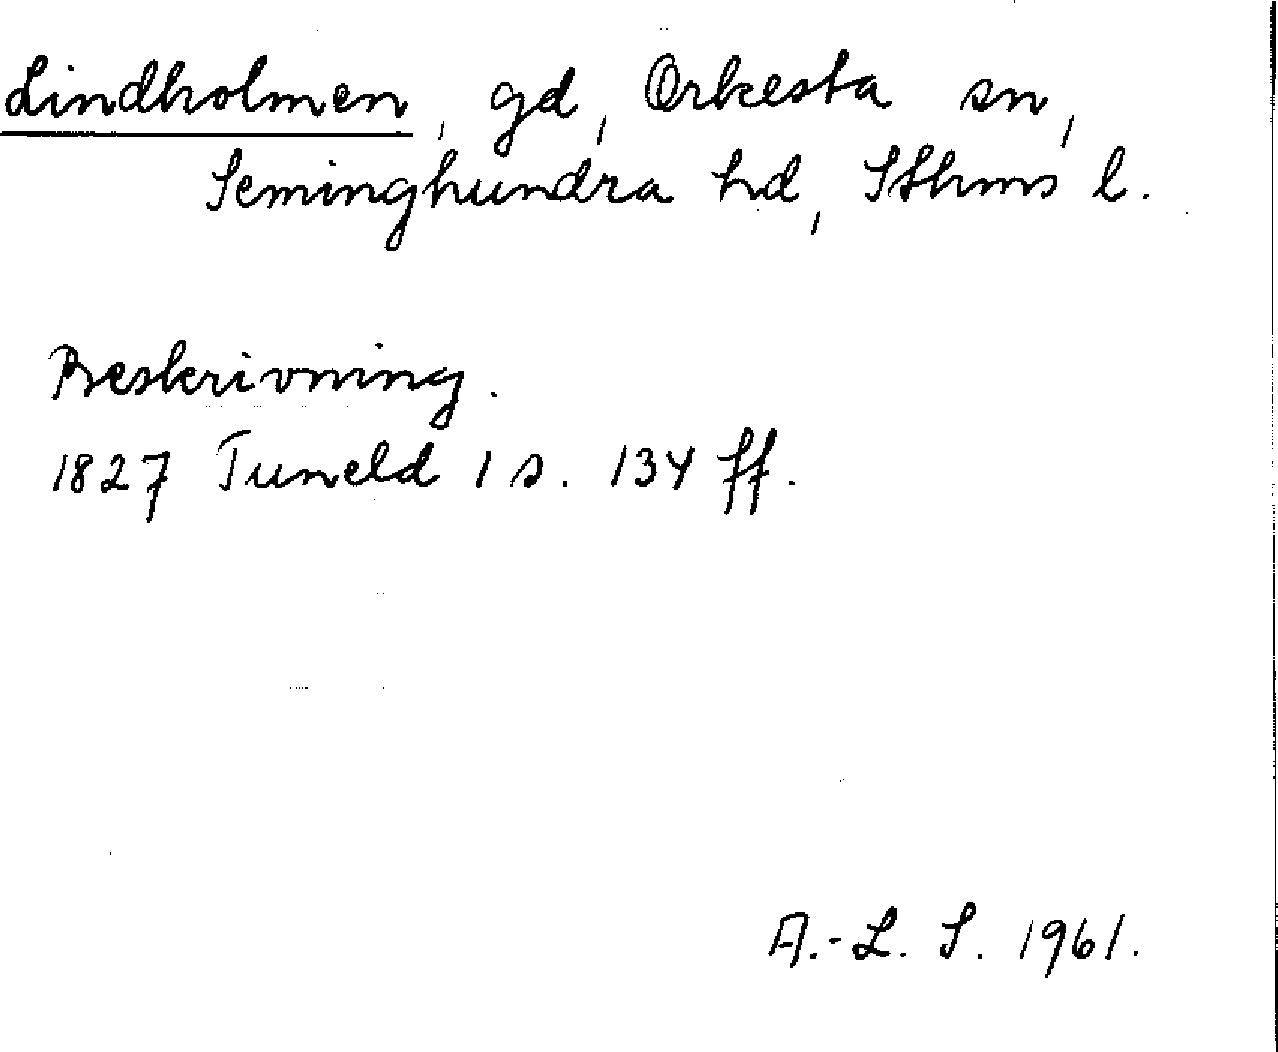 Lindholmen, gd, Orkesta sn,
Seminghundra hd, Sthms l.
Beskrivning.
1827 Tuneld I s. 134 ff.
A.-L. S. 1961.